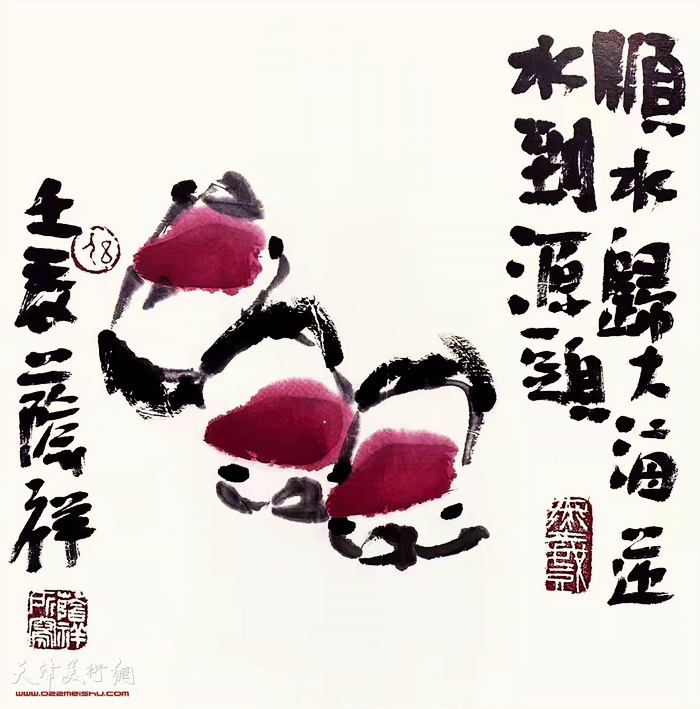 順水歸大海逆
水到源頭
壬夏蔭祥
蔭祥所寫
天津美术網
www.022meishu.com